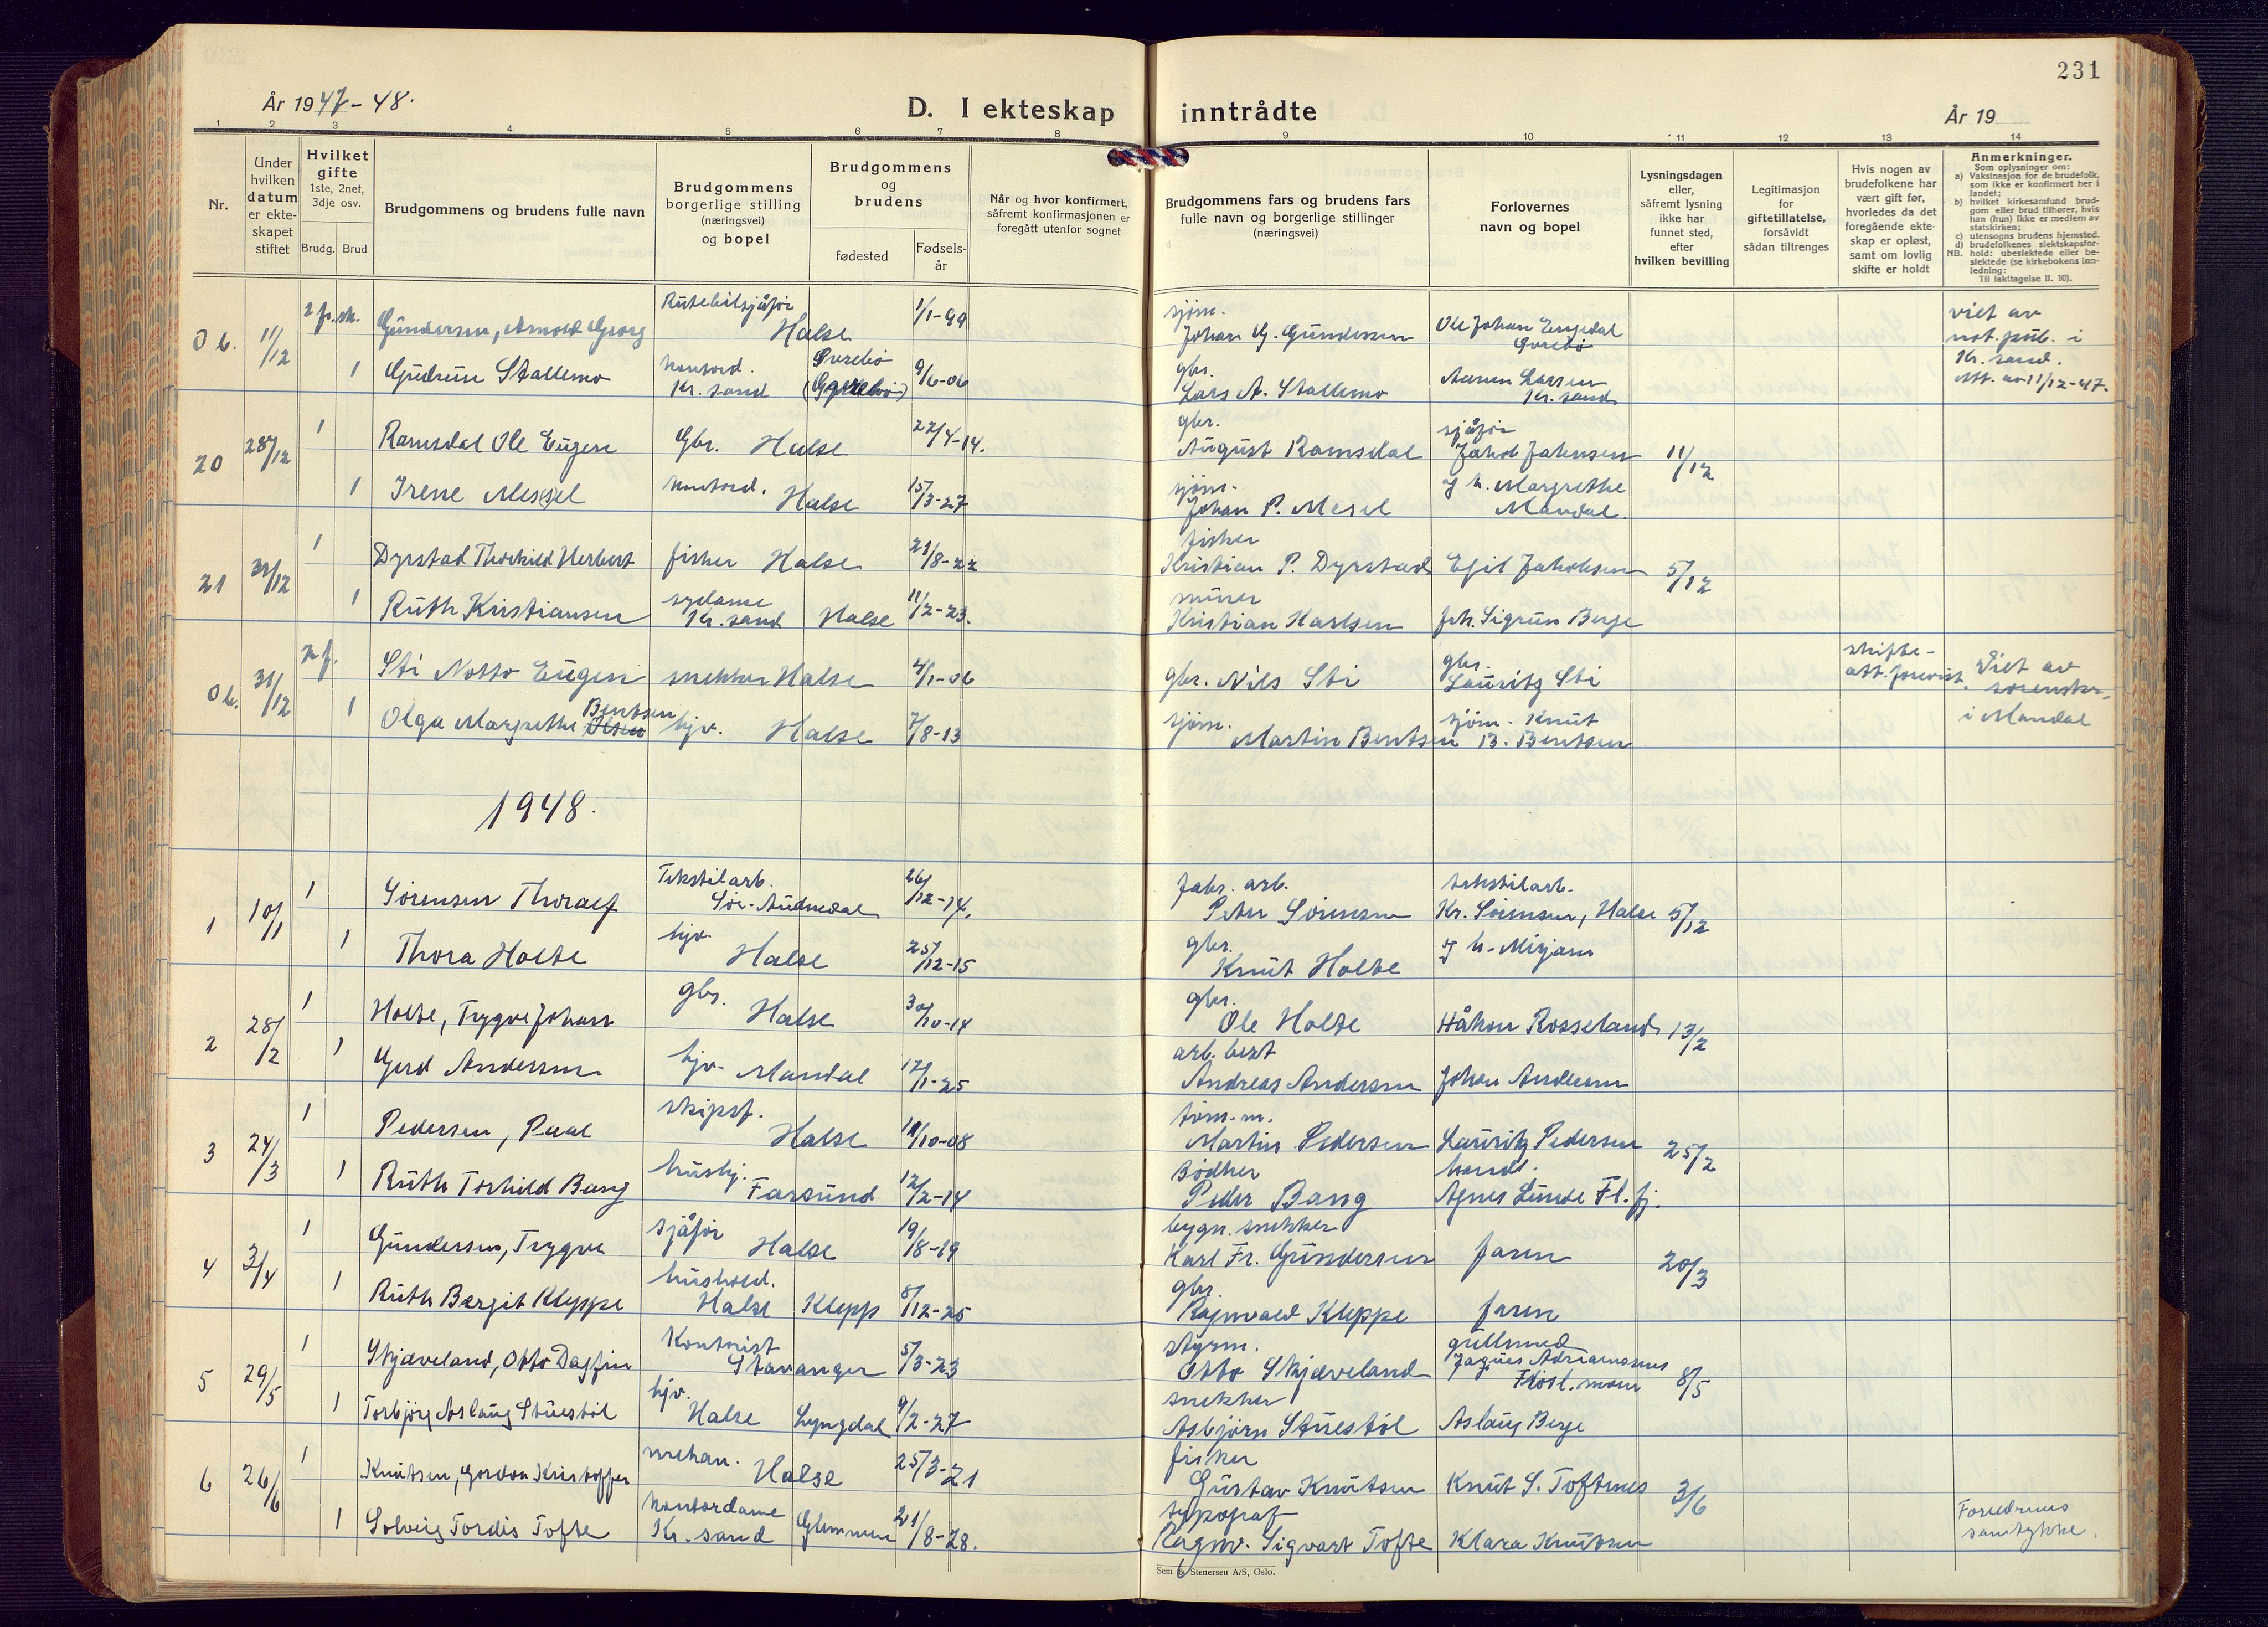 231
År 1947-48.
D. I ekteskap inntrådte
År 19
1 2 3 4 5 6 7 8 9 10 11 12 13 14
Nr.
Under hvilken datum er ekteskapet stiftet
Hvilket gifte 1ste, 2net, 3dje osv.
Brudg. Brud
Brudgommens og brudens fulle navn
Brudgommens borgerlige stilling (næringsvei) og bopel
Brudgommens og brudens
fødested
Fødsels-år
Når og hvor konfirmert, såfremt konfirmasjonen er foregått utenfor sognet
Brudgommens fars og brudens fars fulle navn og borgerlige stillinger (næringsvei)
Forlovernes navn og bopel
Lysningsdagen eller, såfremt lysning ikke har funnet sted, efter hvilken bevilling
Legitimasjon for giftetillatelse, forsåvidt sådan tiltrenges
Hvis nogen av brudefolkene har vært gift før, hvorledes da det foregående ekteskap er opløst, samt om lovlig skifte er holdt
Anmerkninger.
Som oplysninger om:
a) Vaksinasjon for de brudefolk, som ikke er konfirmert her i landet;
b) hvilket kirkesamfund brudgom eller brud tilhører, hvis han (hun) ikke er medlem av statskirken;
c) utensogns brudens hjemsted.
d) brudefolkenes slektskapsforhold: ubeslektede eller beslektede (se kirkebokens innledning:
NB. Til iakttagelse II. 10).
Rutebilsjåfør 1/1-99 sjøm. viet av
0 b. 11/12 2 fr.sk. Gundersen, Arnold Georg Halse Johan G. Gundersen Ole Johan Engedal Øvrebø not. pub. i
1 Gudrun Stallemo kontord. Kr. sand Øvrebø 9/6-06 gbr. Lars A. Stallemo Aanen Larsen Kr. sand Kr. sand. Att. av 11/12-47.
20 28/12 1 Ramsdal Ole Eugen Gbr. Halse 22/4-14. gbr. August Ramsdal sjåfør Jakob Jakobsen 11/12
1 Irene Mesel kontord. Halse 15/3-27 sjøm. Johan P. Mesel og h. Margrethe Mandal.
21 31/12 1 Dyrstad Thorkild Herbert fisker Halse 21/8-22 fisker Kristian P. Dyrstad Egil Jakobsen 5/12
1 Ruth Kristiansen sydame Kr. sand Halse 11/2-23. murer Kristian Karlsen frk. Sigrun Berge
0 b. 31/12 2 f. Sti Notto Eugen snekker Halse 4/1-06 gbr. Nils Sti gbr. Lauritz Sti skifte-att. forevist. Viet av sorenskr.
1 Olga Margrethe Olsen Bentsen hjv. Halse 7/8-13 sjøm. Martin Bentsen sjøm. Knut B. Bentsen i Mandal
1948.
1 10/1 1 Sørensen Thoralf Tekstilarb. Sør-Audnedal 26/12-14. fabr. arb. Peter Sørensen tekstilarb. Kr. Sørensen, Halse 5/12
1 Thora Holte hjv Halse 25/12-15 gbr. Knut Holte og h. Mirjam
2 28/2 1 Holte, Trygve Johan gbr. Halse 30/10-14 gbr. Ole Holte Håkon Rosseland 13/2
1 Gerd Andersen hjv. Mandal 17/1-25 arb. best Andreas Andersen Johan Andersen
3 24/3 1 Pedersen, Paal skipsf. Halse 10-08 tøm.m. Martin Pedersen Lauritz Pedersen 25/2
1 Ruth Torhild Bang hushj. Farsund 12/2-14 Bødker Peder Bang handl. Agnes Lunde Fl. fj.
4 3/4 1 Gundersen, Trygve sjåfør Halse 19/8-19 bygn. snekker Karl Fr. Gundersen faren 20/3
1 Ruth Bergit Kleppe hushold. Halse Klepp 8/12-25 gbr. Ragnvald Kleppe faren
5 29/5 1 Skjæveland, Otto Dagfin Kontorist Stavanger 5/3-23 styrm. Otto Skjæveland gullsmed 8/5
1 Torbjørg Aslaug Stuestøl hjv. Halse Lyngdal 9/2-27 snekker Asbjørn Stuestøl Aslaug Berge
6 26/6 1 Knutsen, Gordon Kristoffer mekan. Halse 25/3-21 fisker Gustav Knutsen Knut S. Toftenes 3/6
1 Solveig Tordis Tofte kontordame Kr. sand Glemmen 21/8-28. typograf Ragnv. Sigvart Tofte Klara Knutsen Foreldrenes samtykke.
Sem & Stenersen A/S, Oslo.